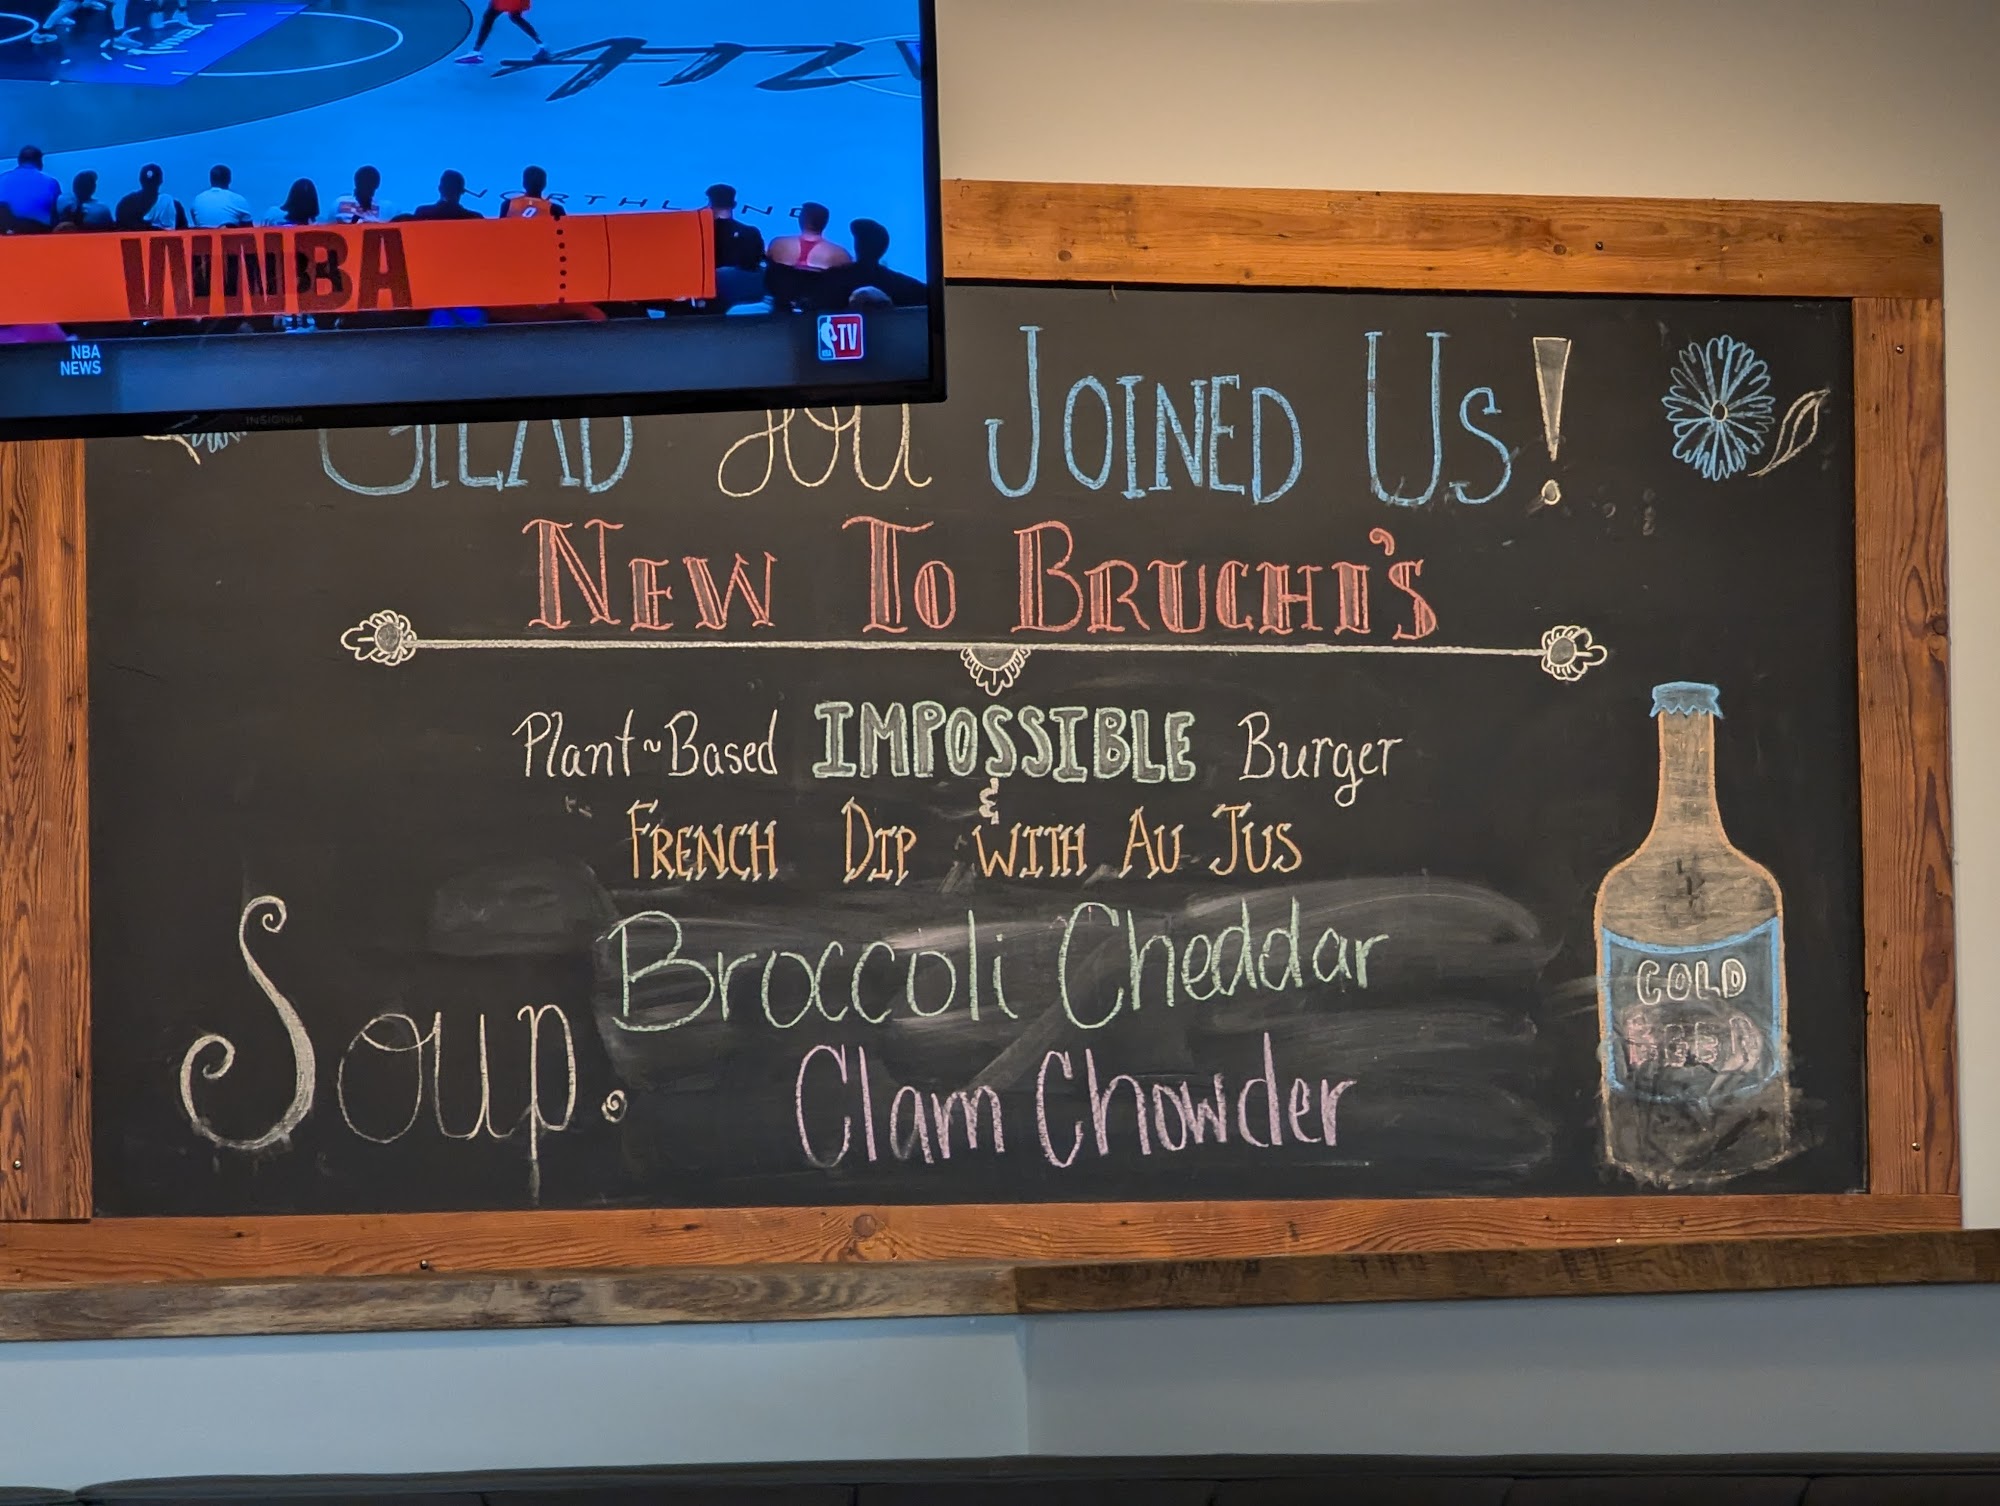 ATL
NORTHLAND
WNBA
NBA
NEWS
TV
INSIGNIA
GLAD you JOINED US!
NEW TO BRUCHI'S
Plant~Based IMPOSSIBLE Burger
&
FRENCH DIP WITH AU JUS
Soup. Broccoli Cheddar
Clam Chowder
COLD
BEER